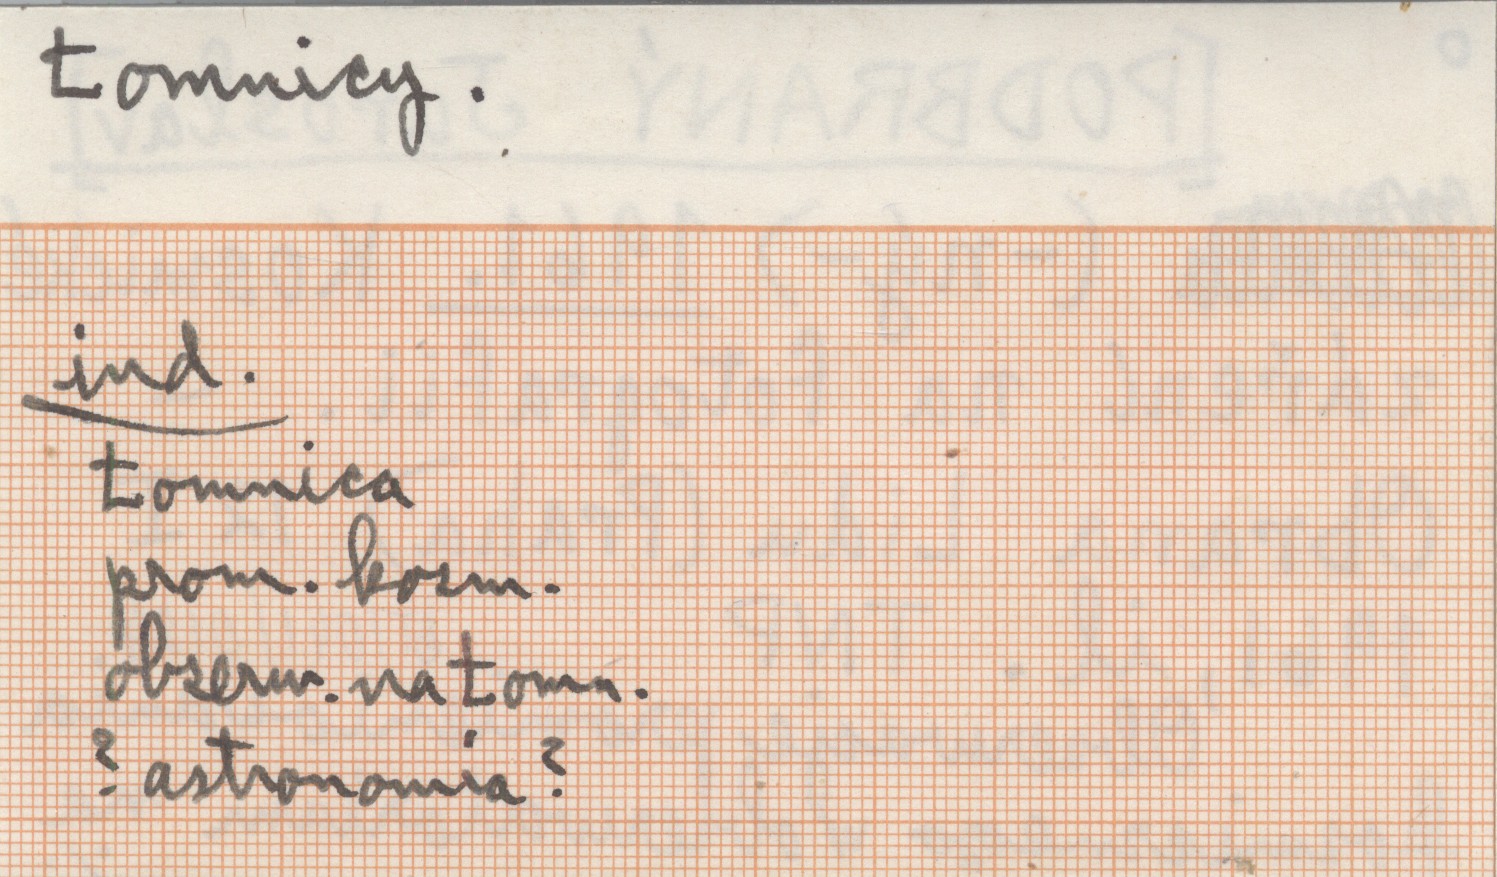 Łomnicy.
ind.
Łomnica
prom. kosm.
obserw. na Łomn.
? astronomia?